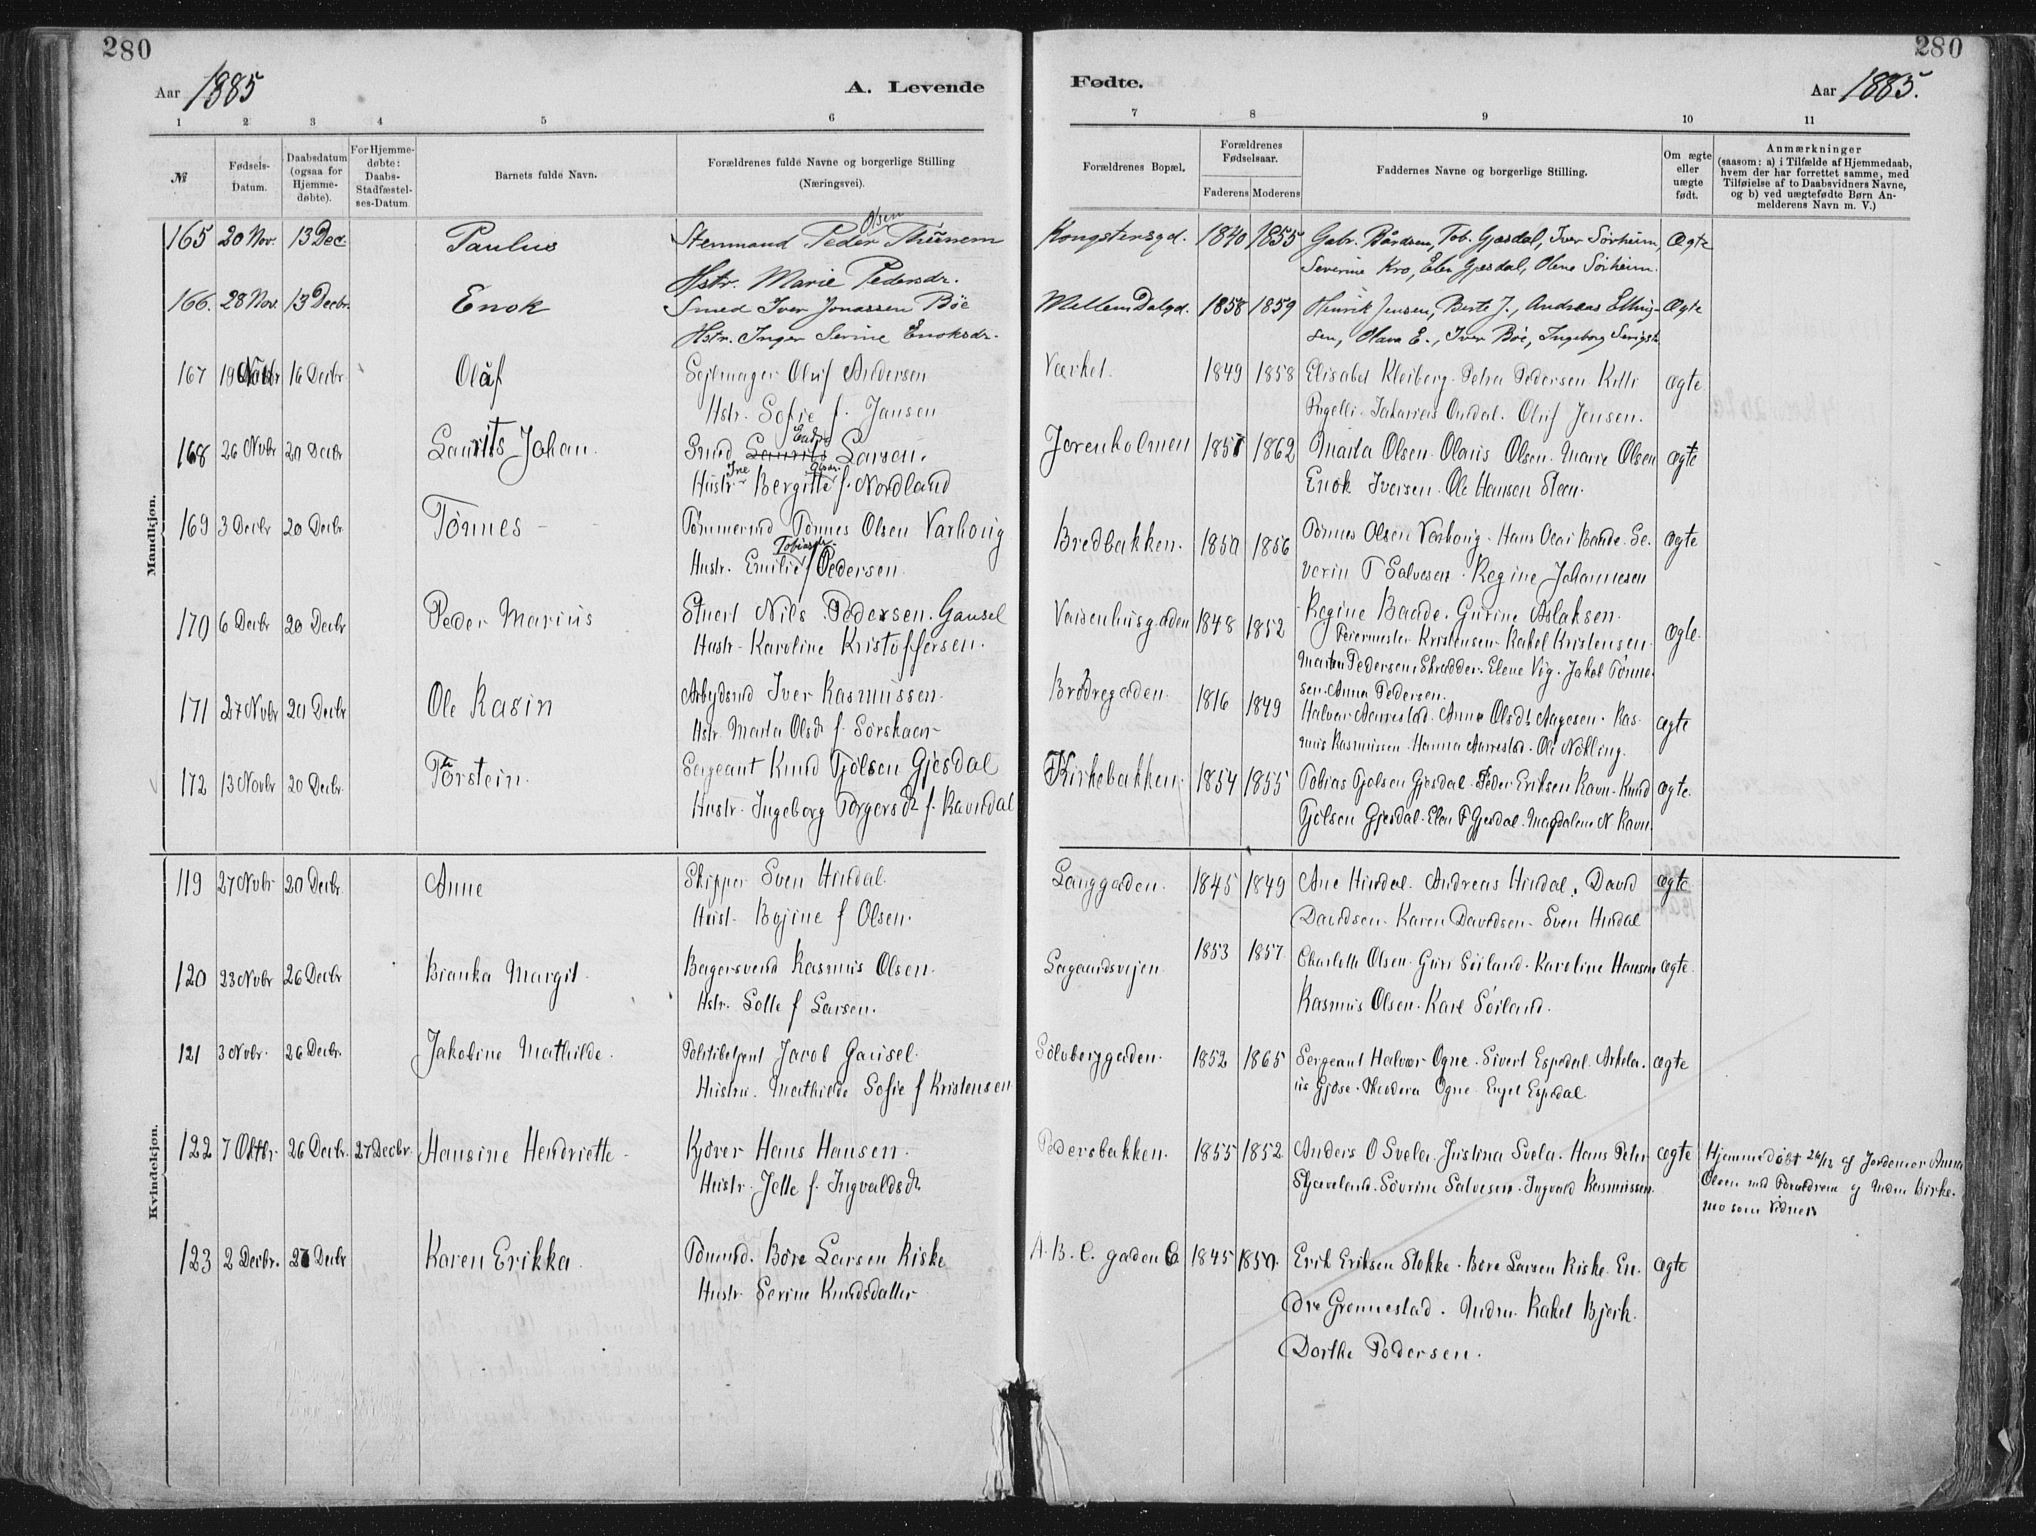 280
280
Aar 1885
A. Levende
Fødte.
Aar 1885.
1 2 3 4 5 6 7 8 9 10 11
№
Fødsels-Datum.
Daabsdatum (ogsaa for Hjemme-døbte).
For Hjemme-døbte: Daabs-Stadfæstel-ses-Datum.
Barnets fulde Navn.
Forældrenes fulde Navne og borgerlige Stilling (Næringsvei).
Forældrenes Bopæl.
Forældrenes Fødselsaar.
Faderens Moderens
Faddernes Navne og borgerlige Stilling.
Om ægte eller uægte født.
Anmærkninger
(saasom: a) i Tilfælde af Hjemmedaab,
hvem der har forrettet samme, med
Tilføielse af to Daabsvidners Navne,
og b) ved uægtefødte Børn An-
melderens Navn m. V.)
Mandkjøn.
165 20 Nov. 13 Dec. Paulus Stenmand Peder Olsen Thunem Kongstensgd. 1840 1855 Gabr. Bårdsen, Tob. Gjesdal, Iver Sørheim, Ægte
Hstr. Marie Pedersdr. Severine Kro, Elen Gjesdal, Olene Sørheim.
166. 28 Nov. 13 Decbr. Enok Smed Iver Jonassen Bøe Mellem Dalgd. 1858 1859 Henrik Jensen, Berte J., Andreas Elling- Ægte
Hstr. Inger Serine Enoksdr. sen, Olava E., Iver Bøe, Ingeborg
167 19 Novbr 16 Decbr Olaf Sejlmager Oluf Andersen Værket. 1849 1858 Elisabet Kleiberg. Petra Pedersen ægte
Hstr. Sofie f. Jansen Oluf Jensen.
168 26 Novbr 20 Decbr Laurits Johan. Smed Endre Larsen. Jorenholmen 1857 1862 Marta Olsen. Olaus Olsen. Marie Olsen ægte
Hustr. Ine Bergitte Olsdr. f. Nordland Enok Iversen. Ole Hansen Steen.
169 3 Decbr 20 Decbr. Tønnes Tømmermd Tønnes Olsen Varhoug Bredbakken. 1850 1856 Tønnes Olsen Varhoug. Hans Olai Baade. Se- ægte
Hustr. Emilie Tobiasdr. f Pedersen. verin T Salvesen. Regine Johannesen
170 6 Decbr 20 Decbr Peder Marius Stuert Nils Pedersen. Gausel Vaisenhusgaden 1848 1852 Regine Baade. Gurine Aslaksen. ægte.
Hustr. Karoline Kristoffersen. Feiermester Kristensen. Rakel Kristensen
Marten Pedersen Skrædder. Elene Vig. Jakob Tønne-
sen. Anna Pedersen.
171 27 Novbr 20 Decbr Ole Kasin Arbejdsmd Iver Rasmussen. Brødregaden. 1816 1849 Halvor Aarrestad. Anne Olsdt Aagesen. Ras- ægte
Hstr Marta Olsdr f. Sørskaar mus Rasmussen. Hanna Aarrestad. Ole Nødling.
172 13 Novbr 20 Decbr. Torstein. Sergeant Knud Tjølsen Gjesdal Kirkebakken. 1854 1855 Tobias Tjølsen Gjesdal. Peder Eriksen Ravn. Knud ægte.
Hustr. Ingeborg Torgersdr f. Ravndal Tjølsen Gjesdal. Elen T Gjesdal. Magdalene N Ravn.
Kvindekjøn.
119 27 Novbr 20 Decbr. Anne Skipper Sven Hindal Langgaden. 1845 1849 Ane Hindal. Andreas Hindal. David ægte.
Hust. Bojine f Olsen. Davidsen. Karen Davidsen. Sven Hindal
120 23 Novbr 26 Decbr Bianka Margit. Bagersvend Rasmus Olsen. Lagaardsvejen. 1853 1857 Charlotte Olsen. Guri Søiland. Karoline Hansen ægte.
Hstr. Lotte f Larsen. Rasmus Olsen. Karl Søiland.
121 3 Novbr. 26 Decbr. Jakobine Mathilde. Politibetjent Jacob Gausel. Sølvberggaden. 1852 1865 Sergeant Halvor Ogne. Sivert Espedal. Arkela- ægte
Hustru. Mathilde Sofie f Kristensen us Gjøse. Theodora Ogne. Engel Espedal.
122 7 Oktbr. 26 Decbr. 27 Decbr. Hansine Hendriette Kjører Hans Hansen. Pedersbakken. 1855 1852 Anders O Svela. Justina Svela. Hans Peter ægte Hjemmedøbt 26/12 af Jordemor Anna
Hustr. Jette f. Ingvaldsdr Skjæveland. Søvrine Salvesen. Ingvald Rasmussen. Olsen med Forældrene og Mdm Birke-
mo som Vidner
123 2 Decbr. 27 Decbr Karen Erikka. Tømmd. Børe Larsen Riske A. B. C. gaden 1845 1850. Erik Eriksen Stokke. Børe Larsen Riske. En- ægte
Hustr Serine Knudsdatter dre Grønnestad. Mdm. Rakel Bjerk.
Dorthe Pedersen.